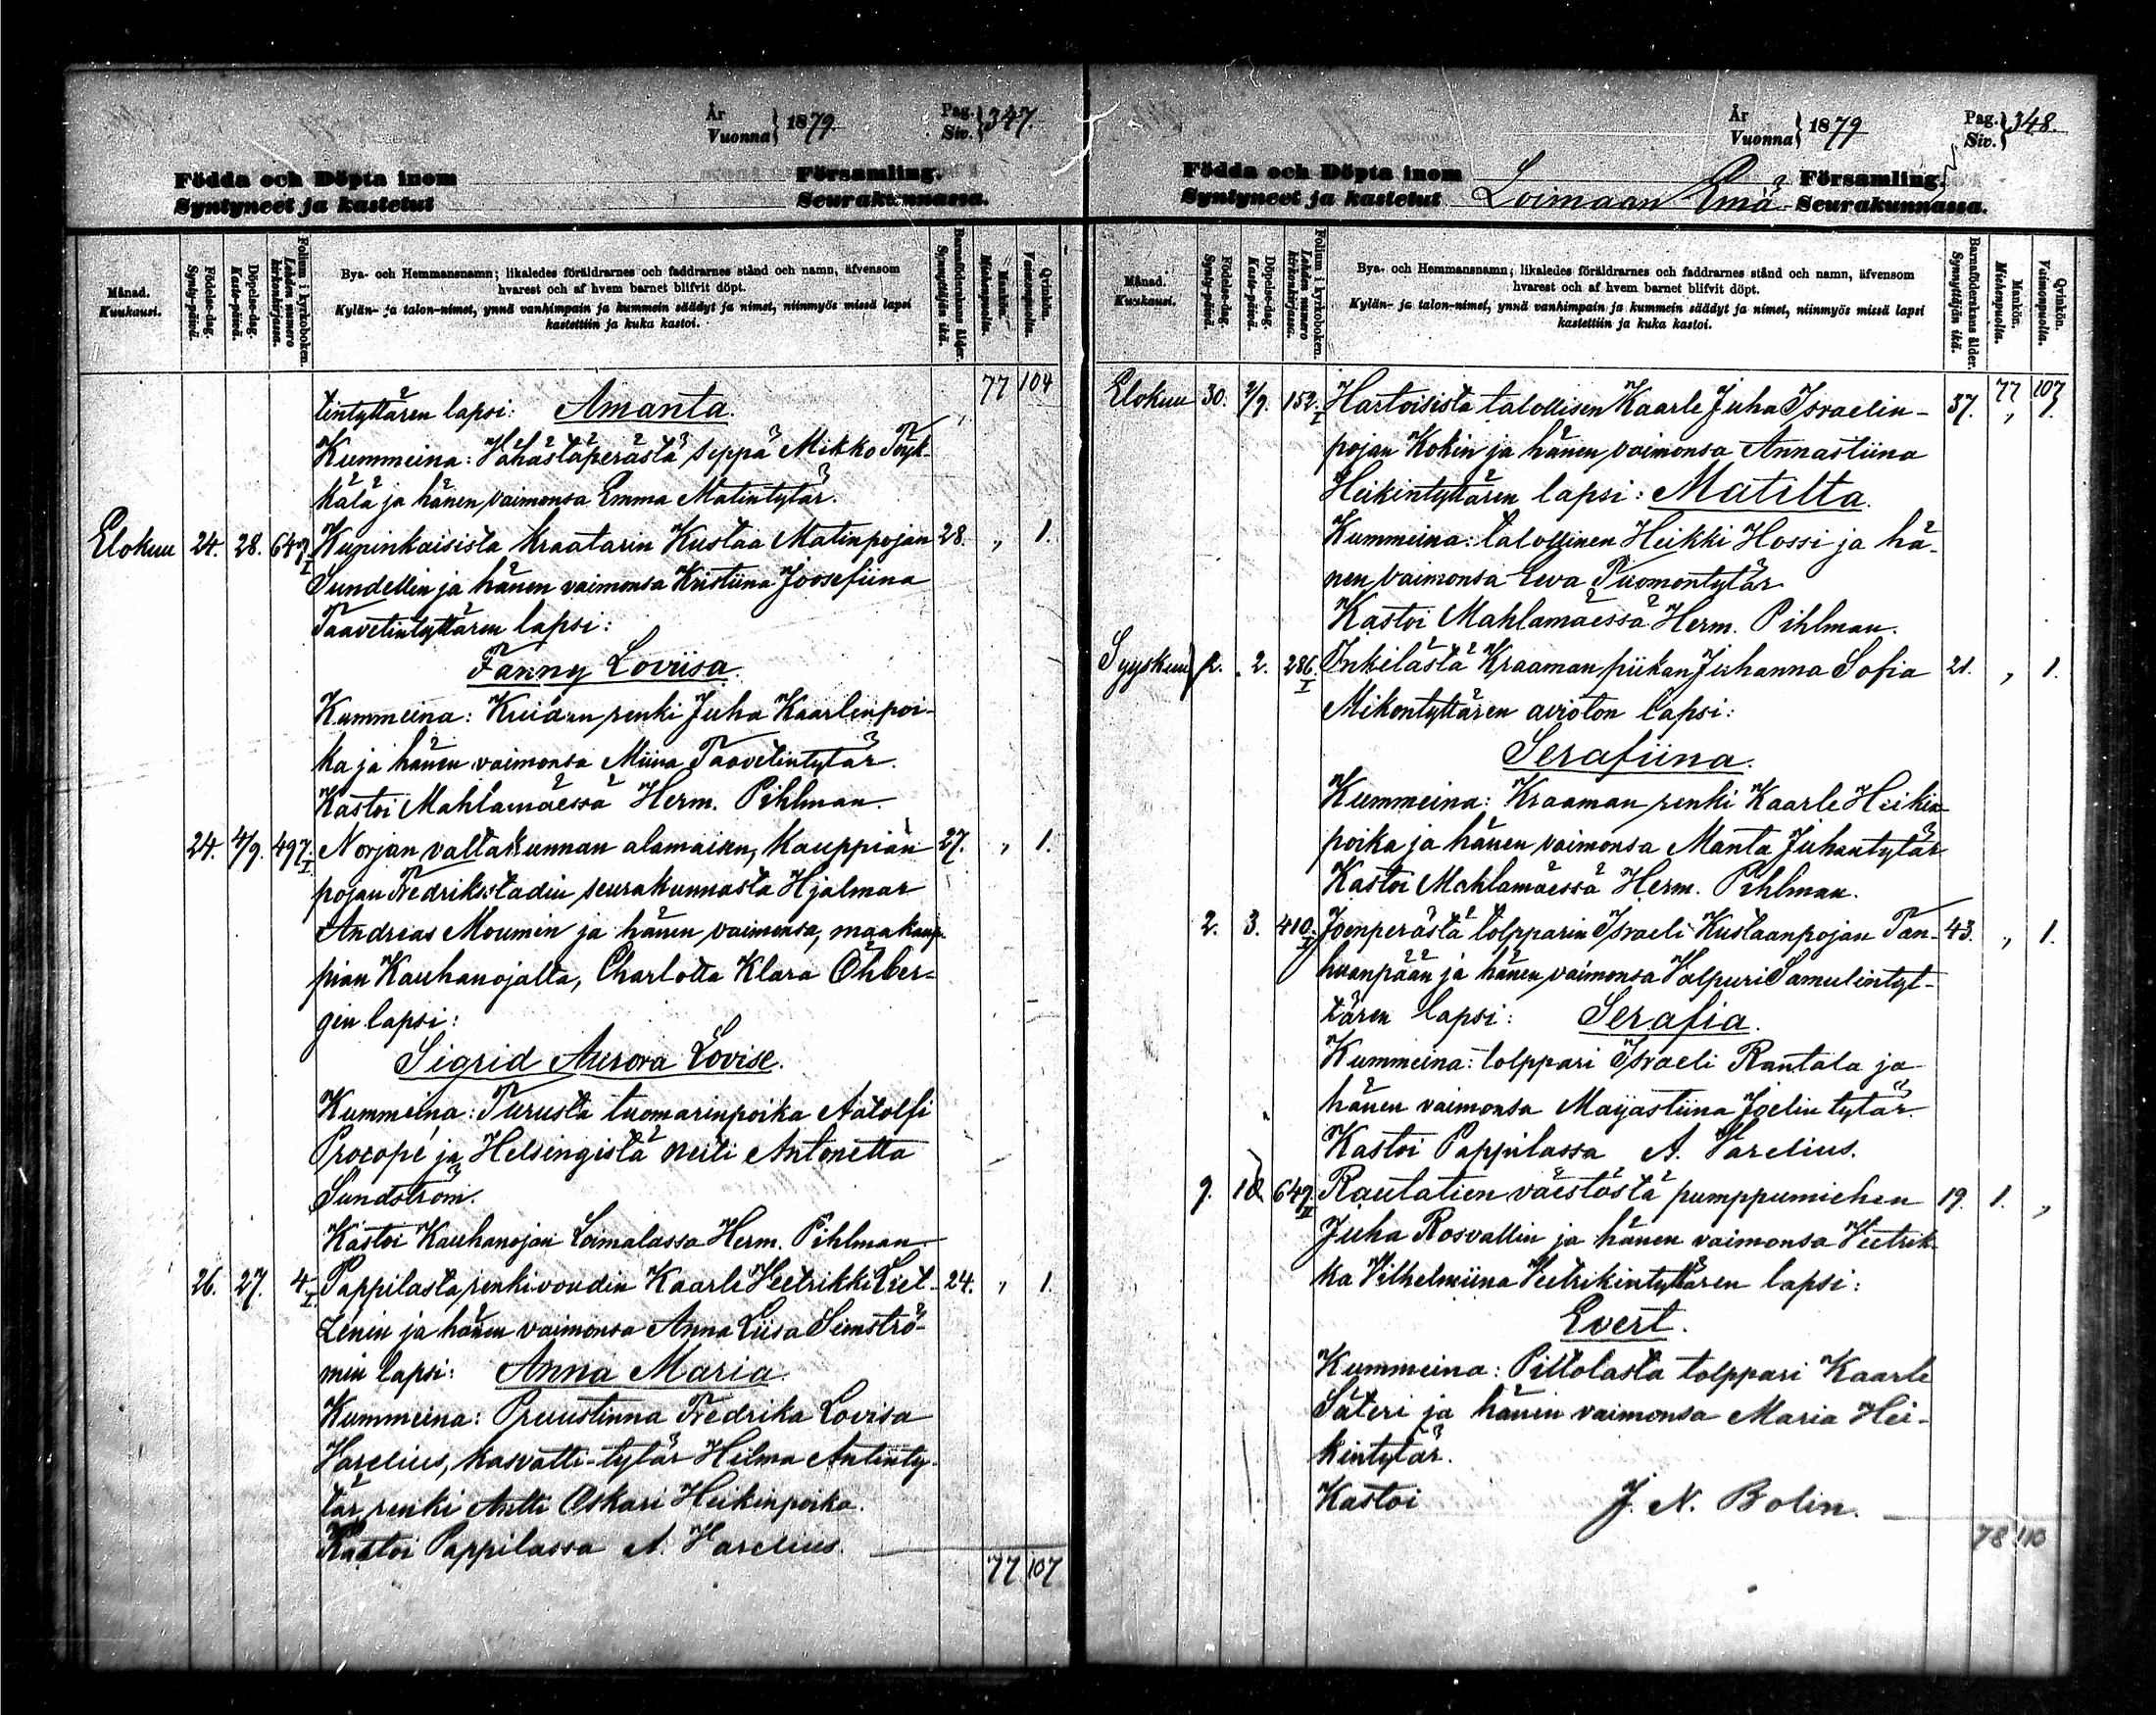 År
Vuonna } 1879.
Pag.
Siv. } 347.
Födda och Döpta inom Församling.
Syntyneet ja kastetut Seurakunnassa.
Månad.
Kuukausi.
Födelse-dag.
Synty-päivä.
Döpelse-dag.
Kaste-päivä.
Folium i kyrkoboken.
Lehden numero kirkonkirjassa.
Bya- och Hemmansnamn; likaledes föräldrarnes och faddrarnes stånd och namn, äfvensom
hvarest och af hvem barnet blifvit döpt.
Kylän- ja talon-nimet, ynnä vanhimpain ja kummein säädyt ja nimet, niinmyös missä lapsi
kastettiin ja kuka kastoi.
Barnaföderskans ålder.
Synnyttäjän ikä.
Mankön.
Miehenpuolta.
Qvinkön.
Vaimonpuolta.
77 104
tintyttären lapsi: Amanta.
Kummeina: Vähästäperästä seppä Mikko Töyk-
kälä ja hänen vaimonsa Emma Matintytär.
Elokuu 24. 28. 647. I Kupinkaisista kraatarin Kustaa Matinpojan 28. „ 1.
Sundellin ja hänen vaimonsa Kristiina Joosefiina
Taavetintyttären lapsi:
Fanny Loviisa.
Kummeina: renki Juha Kaarlenpoi-
ka ja hänen vaimonsa Miina Taavetintytär.
Kastoi Mahlamäessä Herm. Pihlman.
24. 4/9. 497. I Norjan valtakunnan alamaisen, kauppian 27. „ 1.
pojan Fredrikstadin seurakunnasta Hjalmar
Andreas Moumin ja hänen vaimonsa, maakaup-
pian Kauhanojalta, Charlotta Klara Öhber-
gin lapsi:
Sigrid Aurora Lovise.
Kummeina: Turusta tuomarinpoika Aatolfi
Procopé ja Helsingistä neiti Antonetta
Sundström.
Kastoi Kauhanojan Loimalassa Herm. Pihlman
26. 27. 4. I Pappilasta renkivoudin Kaarle Veetrikki Liet- 24. „ 1.
zenin ja hänen vaimonsa Anna Liisa Semströ-
min lapsi: Anna Maria.
Kummeina: Pruustinna Fredrika Lovisa
Varelius, kasvatti-tytär Hilma Antinty-
tär, renki Antti Oskari Heikinpoika.
Kastoi Pappilassa A. Varelius.
77 107
År
Vuonna } 1879
Pag.
Siv. } 348.
Födda och Döpta inom Församling.
Syntyneet ja kastetut Loimaan Emä Seurakunnassa.
Månad.
Kuukausi.
Födelse-dag.
Synty-päivä.
Döpelse-dag.
Kaste-päivä.
Folium i kyrkoboken.
Lehden numero kirkonkirjassa.
Bya- och Hemmansnamn; likaledes föräldrarnes och faddrarnes stånd och namn, äfvensom
hvarest och af hvem barnet blifvit döpt.
Kylän- ja talon-nimet, ynnä vanhimpain ja kummein säädyt ja nimet, niinmyös missä lapsi
kastettiin ja kuka kastoi.
Barnaföderskans ålder.
Synnyttäjän ikä.
Mankön.
Miehenpuolta.
Qvinkön.
Vaimonpuolta.
77 107
Elokuu 30. 2/9. 152. I Hartoisista talollisen Kaarle Juha Israelin- 37. „ 1.
pojan Kokin ja hänen vaimonsa Annastiina
Heikintyttären lapsi: Matilta.
Kummeina: talollinen Heikki Hossi ja hä-
nen vaimonsa Eeva Tuomontytär
Kastoi Mahlamäessä Herm. Pihlman.
Syyskuu 2. 2. 286. I Inkilästä Kraaman piikan Juhanna Sofia 21. „ 1.
Mikontyttären avioton lapsi:
Serafiina.
Kummeina: Kraaman renki Kaarle Heikin
poika ja hänen vaimonsa Manta Juhantytär
Kastoi Mahlamäessä Herm. Pihlman.
2. 3. 410. II Joenperästä tolpparin Israeli Kustaanpojan Tan- 43. „ 1.
huanpään ja hänen vaimonsa Valpuri Samulintyt-
tären lapsi: Serafia.
Kummeina: tolppari Israeli Rantala ja
hänen vaimonsa Maijastiina Joelin tytär
Kastoi Pappilassa A. Varelius.
9. 649. II Rautatien väestöstä pumppumiehen 19. 1. „
Juha Rosvallin ja hänen vaimonsa Veetrik-
ka Vilhelmiina Veetrikintyttären lapsi:
Evert.
Kummeina: Piltolasta tolppari Kaarle
Säteri ja hänen vaimonsa Maria Hei-
kintytär.
Kastoi J. N. Bolin.
78 110